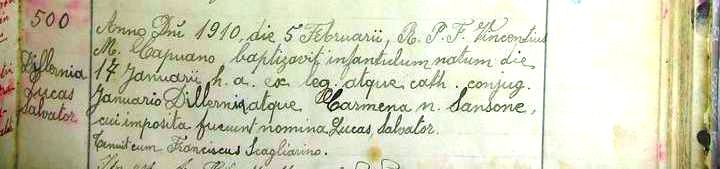 500
Dillernia
Lucas
Salvator
Anno Dñi 1910, die 5 Februarii, R. P. F. Vincentius
M. Capuano baptizavit infantulum natum die
17 Januarii h. a. ex leg. atque cath. conjug.
Januario Dillernia atque Carmena n. Sansone,
cui imposita fuerunt nomina Lucas Salvator.
Tenuit eum Franciscus Scagliarino.